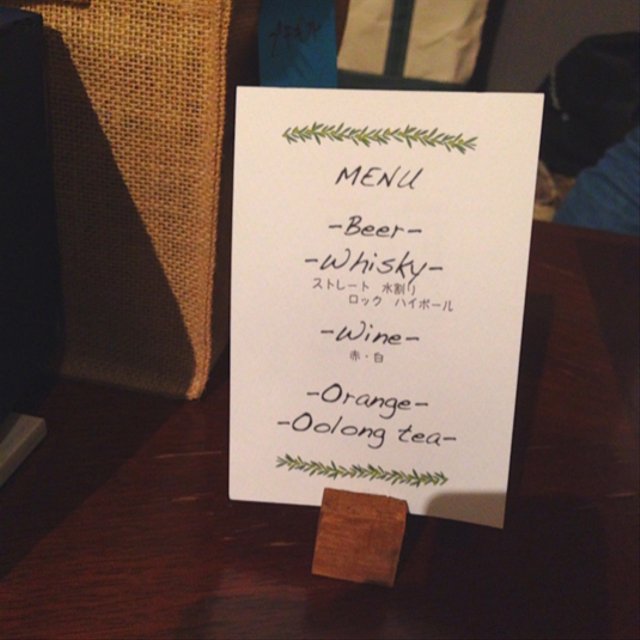 MENU
-Beer-
-Whisky-
ストレート 水割り
ロック ハイボール
-Wine-
赤・白
-Orange-
-Oolong tea-